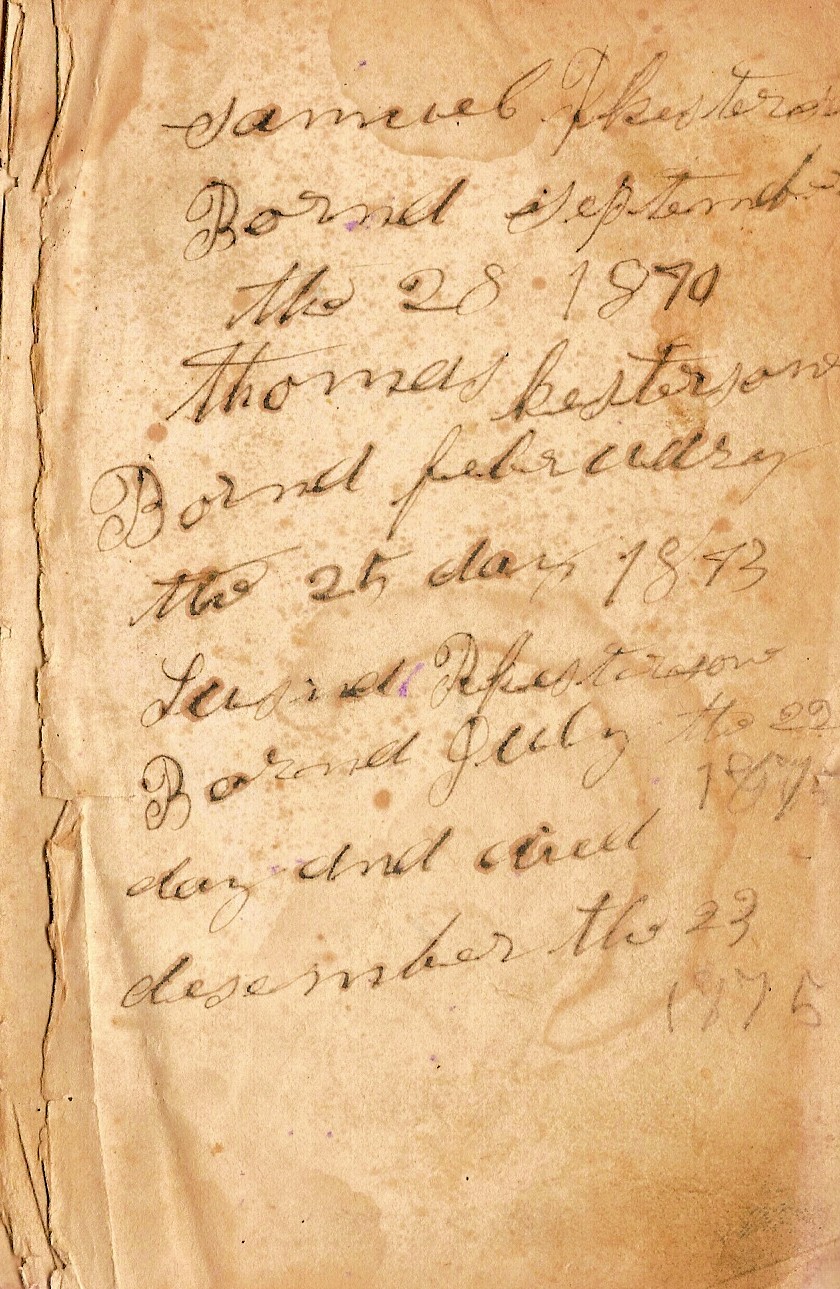 samuel P kesterson
Bornd septembe
the 28 1870
thomas kesterson
Bornd february
the 25 day 1873
Lusind P kesterson
Bornd July the 22
1875
day and died
desember the 23
1875